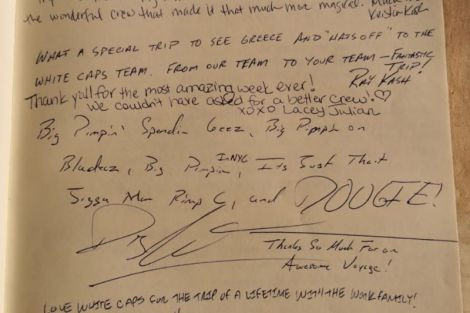 the wonderful crew that made it that much more magical.
Kristin Kash
WHAT A SPECIAL TRIP TO SEE GREECE AND "HATS OFF" TO THE
WHITE CAPS TEAM. FROM OUR TEAM TO YOUR TEAM - FANTASTIC
TRIP!
RAY KASH
Thank y'all for the most amazing week ever!
we couldn't have asked for a better crew! ♡
XOXO Lacey Julian
Big Pimpin' Spendin Geez, Big Pimpin on
Bladez, Big Pimpin in NYC, Its Just That
Jigga Man Pimp C, and DOOGIE!
Thanks So Much For an
Awesome Voyage!
LOVE WHITE CAPS FOR THE TRIP OF A LIFETIME WITH THE WORK FAMILY!